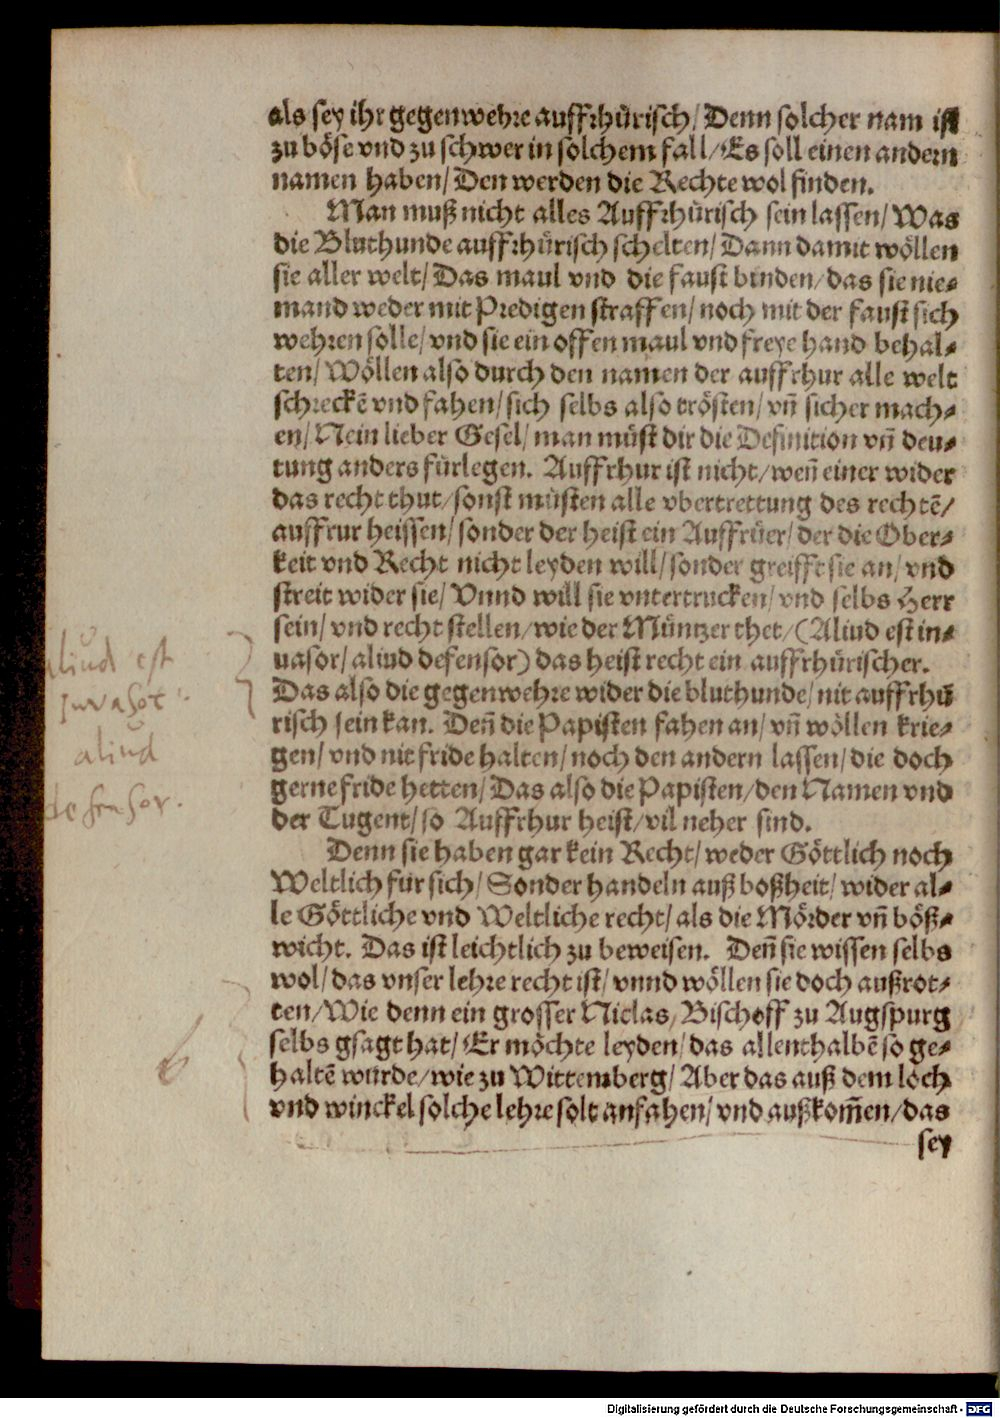 als sey ihr gegenwehre auffrhürisch/ Denn solcher nam ist
zu böse vnd zu schwer in solchem fall/ Es soll einen andern
namen haben/ Den werden die Rechte wol finden.
Man muß nicht alles Auffrhürisch sein lassen/ Was
die Bluthunde auffrhürisch schelten/ Dann damit wöllen
sie aller welt/ Das maul vnd die faust binden/ das sie nie⸗
mand weder mit Predigen straffen/ noch mit der faust sich
wehren solle/ vnd sie ein offen maul vnd freye hand behal⸗
ten/ Wöllen also durch den namen der auffrhur alle welt
schreckē vnd fahen/ sich selbs also trösten/ vn̄ sicher mach⸗
en/ Nein lieber Gesel/ man müst dir die Definition vn̄ deu⸗
tung anders fürlegen. Auffrhur ist nicht/ wen̄ einer wider
das recht thut/ sonst müsten alle vbertrettung des rechtē/
auffrur heissen/ sonder der heist ein Auffrüer/ der die Ober⸗
keit vnd Recht nicht leyden will/ sonder greifft sie an/ vnd
streit wider sie/ Vnnd will sie vntertrucken/ vnd selbs Herr
sein/ vnd recht stellen/ wie der Müntzer thet/ (Aliud est in⸗
uasor/ aliud defensor) das heist recht ein auffrhürischer.
Das also die gegenwehre wider die bluthunde/ nit auffrhü
risch sein kan. Den̄ die Papisten fahen an/ vn̄ wöllen krie⸗
gen/ vnd nit fride halten/ noch den andern lassen/ die doch
gerne fride hetten/ Das also die Papisten/ den Namen vnd
der Tugent/ so Auffrhur heist/ vil neher sind.
Denn sie haben gar kein Recht/ weder Göttlich noch
Weltlich für sich/ Sonder handeln auß boßheit/ wider al⸗
le Göttliche vnd Weltliche recht/ als die Mörder vn̄ böß⸗
wicht. Das ist leichtlich zu beweisen. Den̄ sie wissen selbs
wol/ das vnser lehre recht ist/ vnnd wöllen sie doch außrot⸗
ten/ Wie denn ein grosser Niclas/ Bischoff zu Augspurg
selbs gsagt hat/ Er möchte leyden/ das allenthalbē so ge⸗
haltē würde/ wie zu Wittemberg/ Aber das auß dem loch
vnd winckel solche lehre solt anfahen/ vnd außkom̄en/ das
sey
aliud est
Invasor
aliud
defensor.
Digitalisierung gefördert durch die Deutsche Forschungsgemeinschaft - DFG